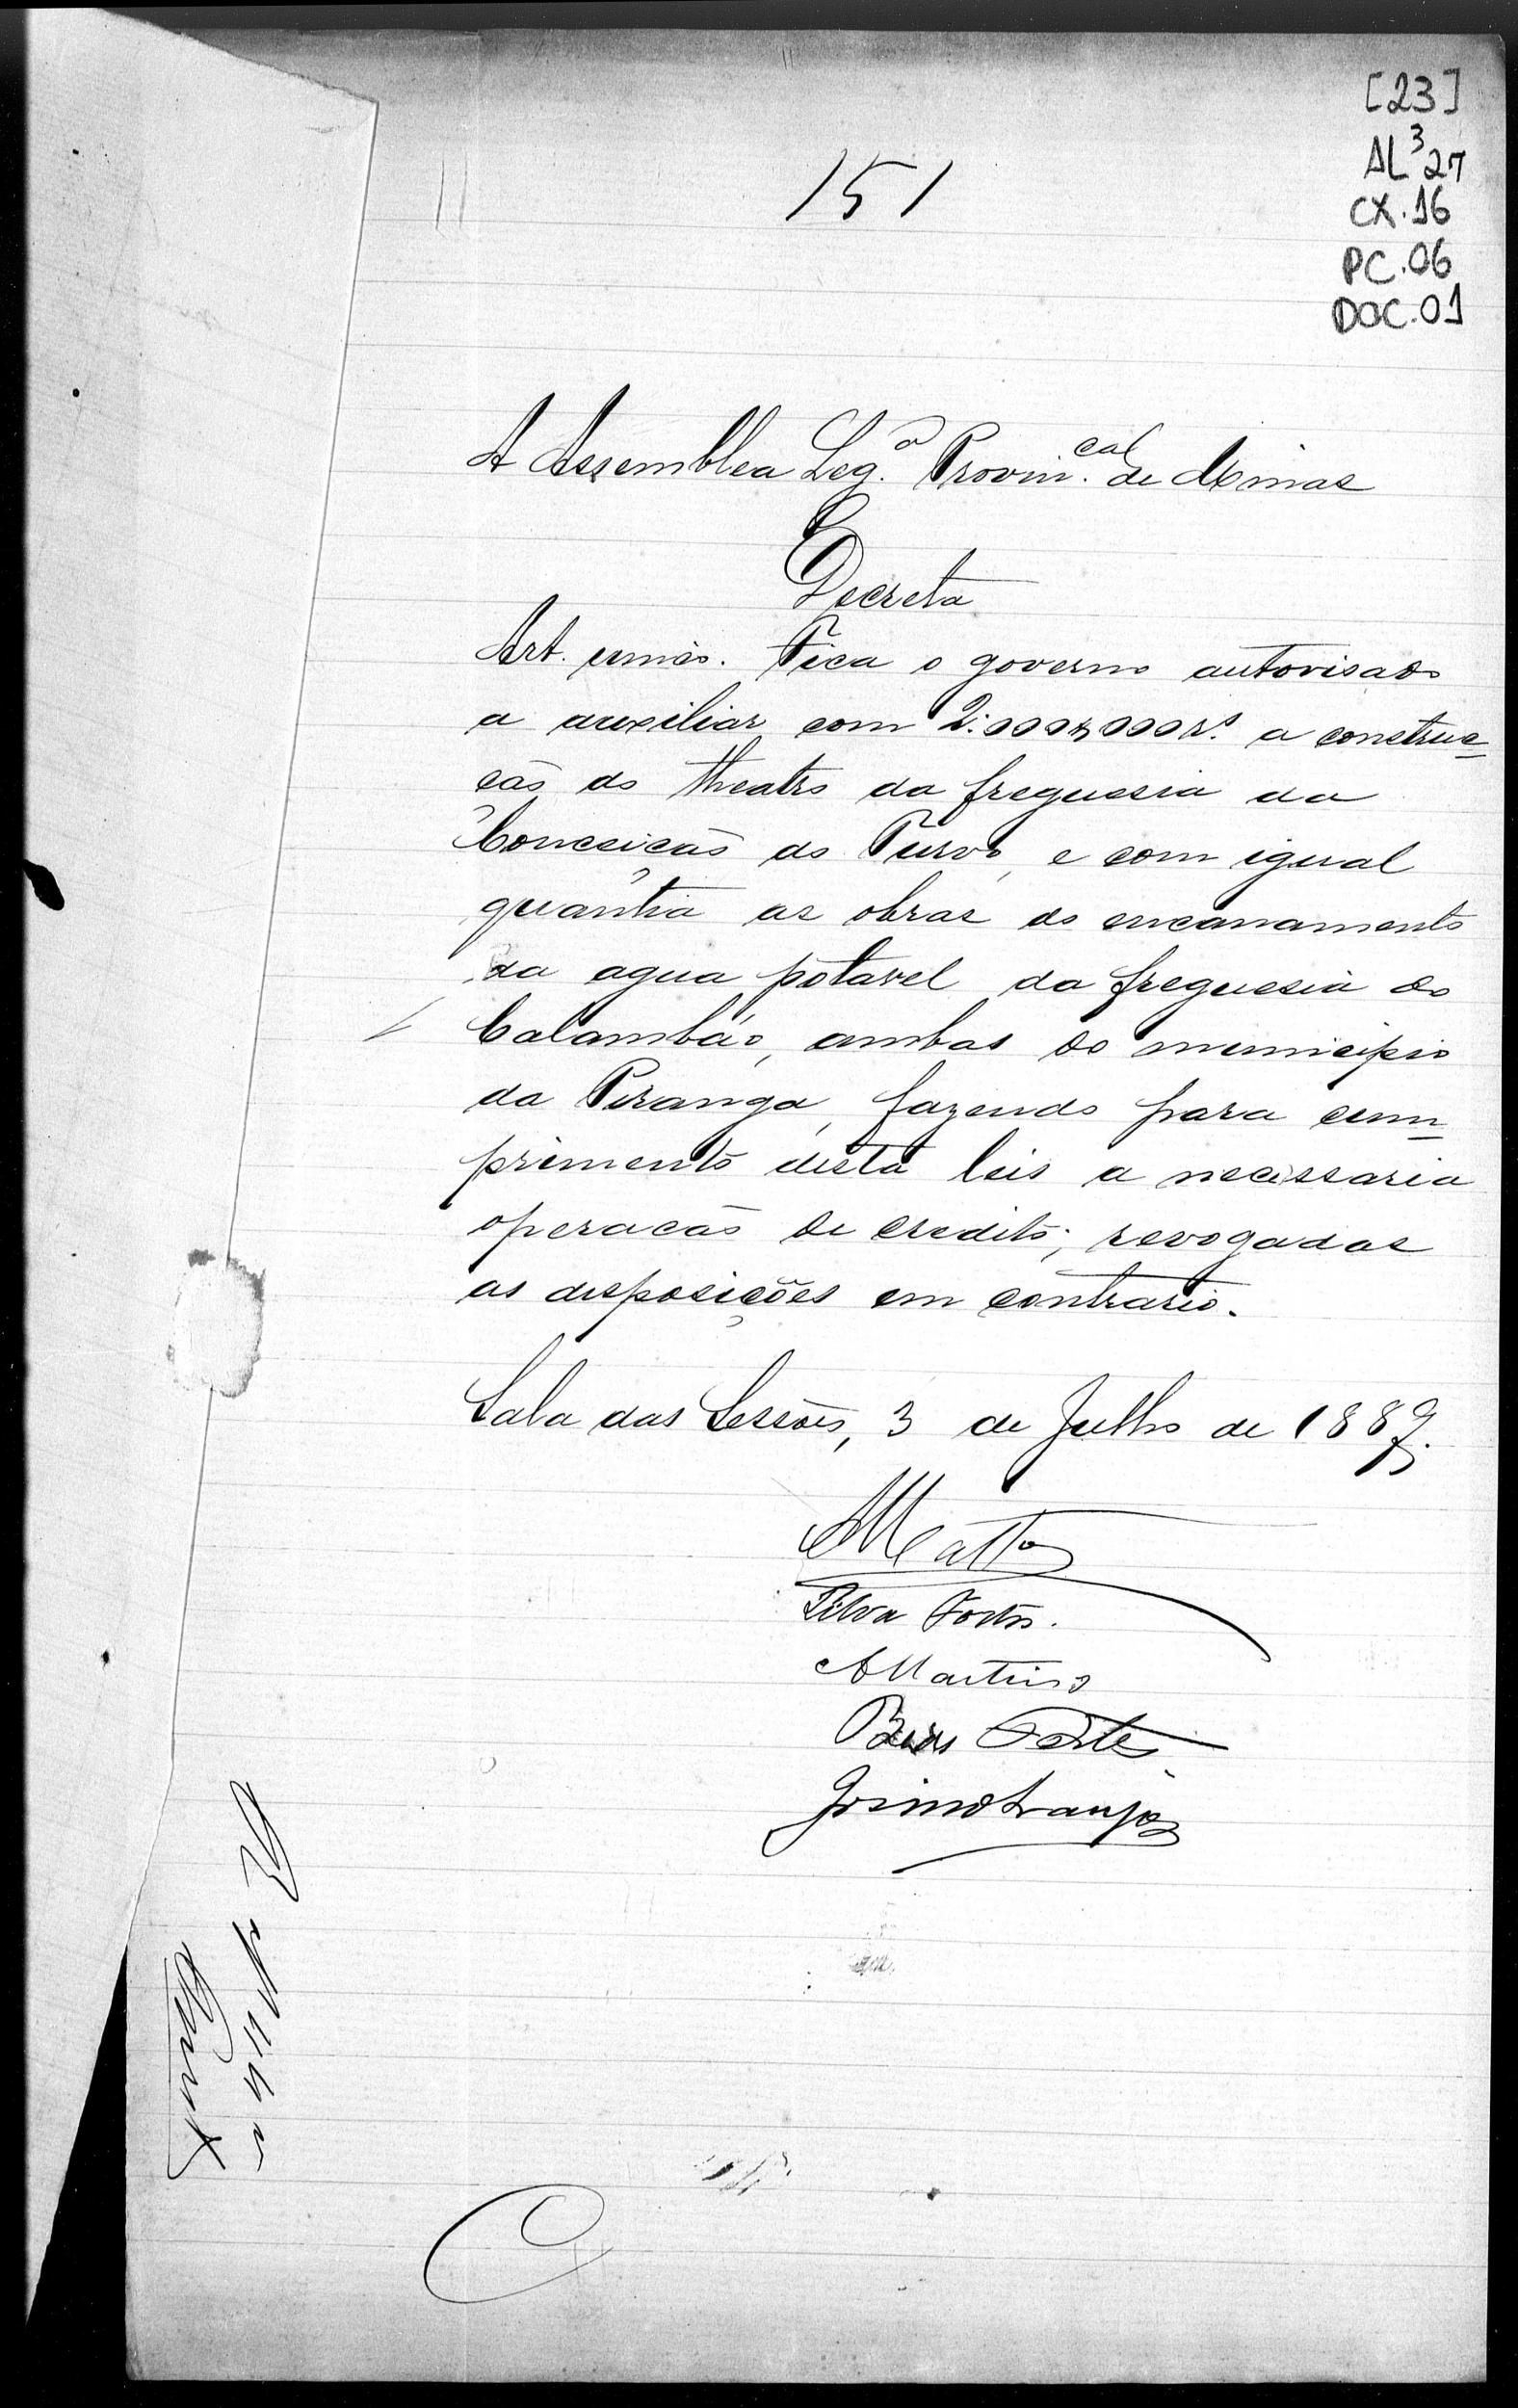 [23]
AL³27
CX.16
PC.06
DOC.01
151
A Assemblea Leg.ª Provin.cal de Minas
Decreta
Art. unico. Fica o governo autorisado
a auxiliar com 2:000$000rs. a construc=
ção do theatro da freguesia da
Conceição do Turvo, e com igual
quantia as obras do encanamento
da agua potavel da freguesia do
Calambáo, ambas do municipio
da Piranga, fazendo para cum=
primento desta leis a necessaria
operacão de credito; revogadas
as disposições em contrario.
Sala das Sessões, 3 de Julho de 1887.
Mattos
Silva Fortes.
AMartins
Bias Fortes